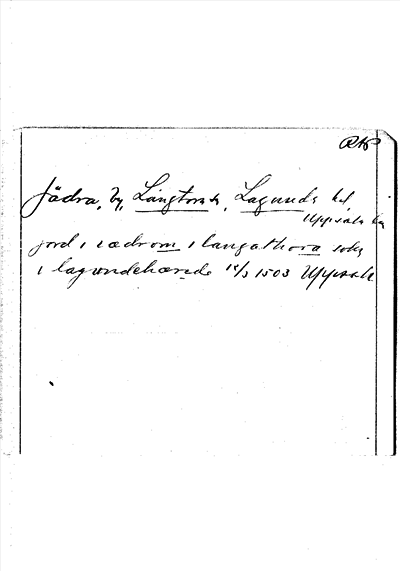 RAP
Jädra, by, Långtora s, Lagunda hd,
Uppsala län
jord i iædrom i langathora sokn
i lagundehærede 12/3 1503 Uppsala